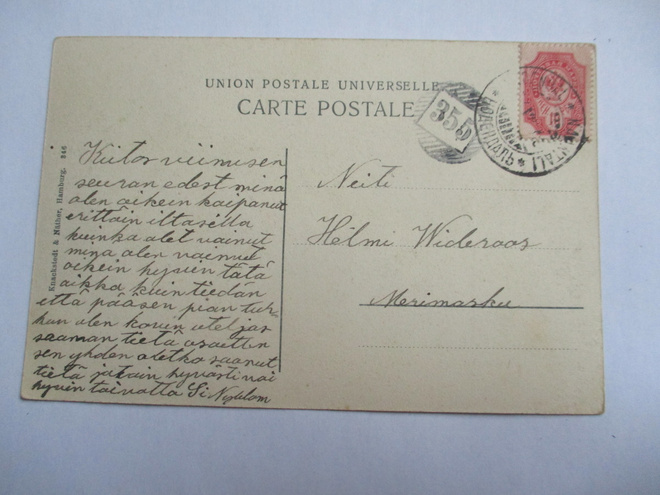 UNION POSTALE UNIVERSELLE
CARTE POSTALE
355
NÅDENDAL
Knackstedt & Näther, Hamburg. 346
Kiitos viimesen
seuran edest minä
olen oikein kaipanut
erittäin iltasella
kuinka olet voinut
minä olen voinut
oikein hyvin tätä
aikka kuin tiedän
että pääsen pian tur
kun olen kovin utelias
saaman tietä
sen yhdon oletko saanut
tietä jätain hyvästi voi
hyvin toivotta Si. Nyholm
Neiti
Helmi Wideroos
Merimasku